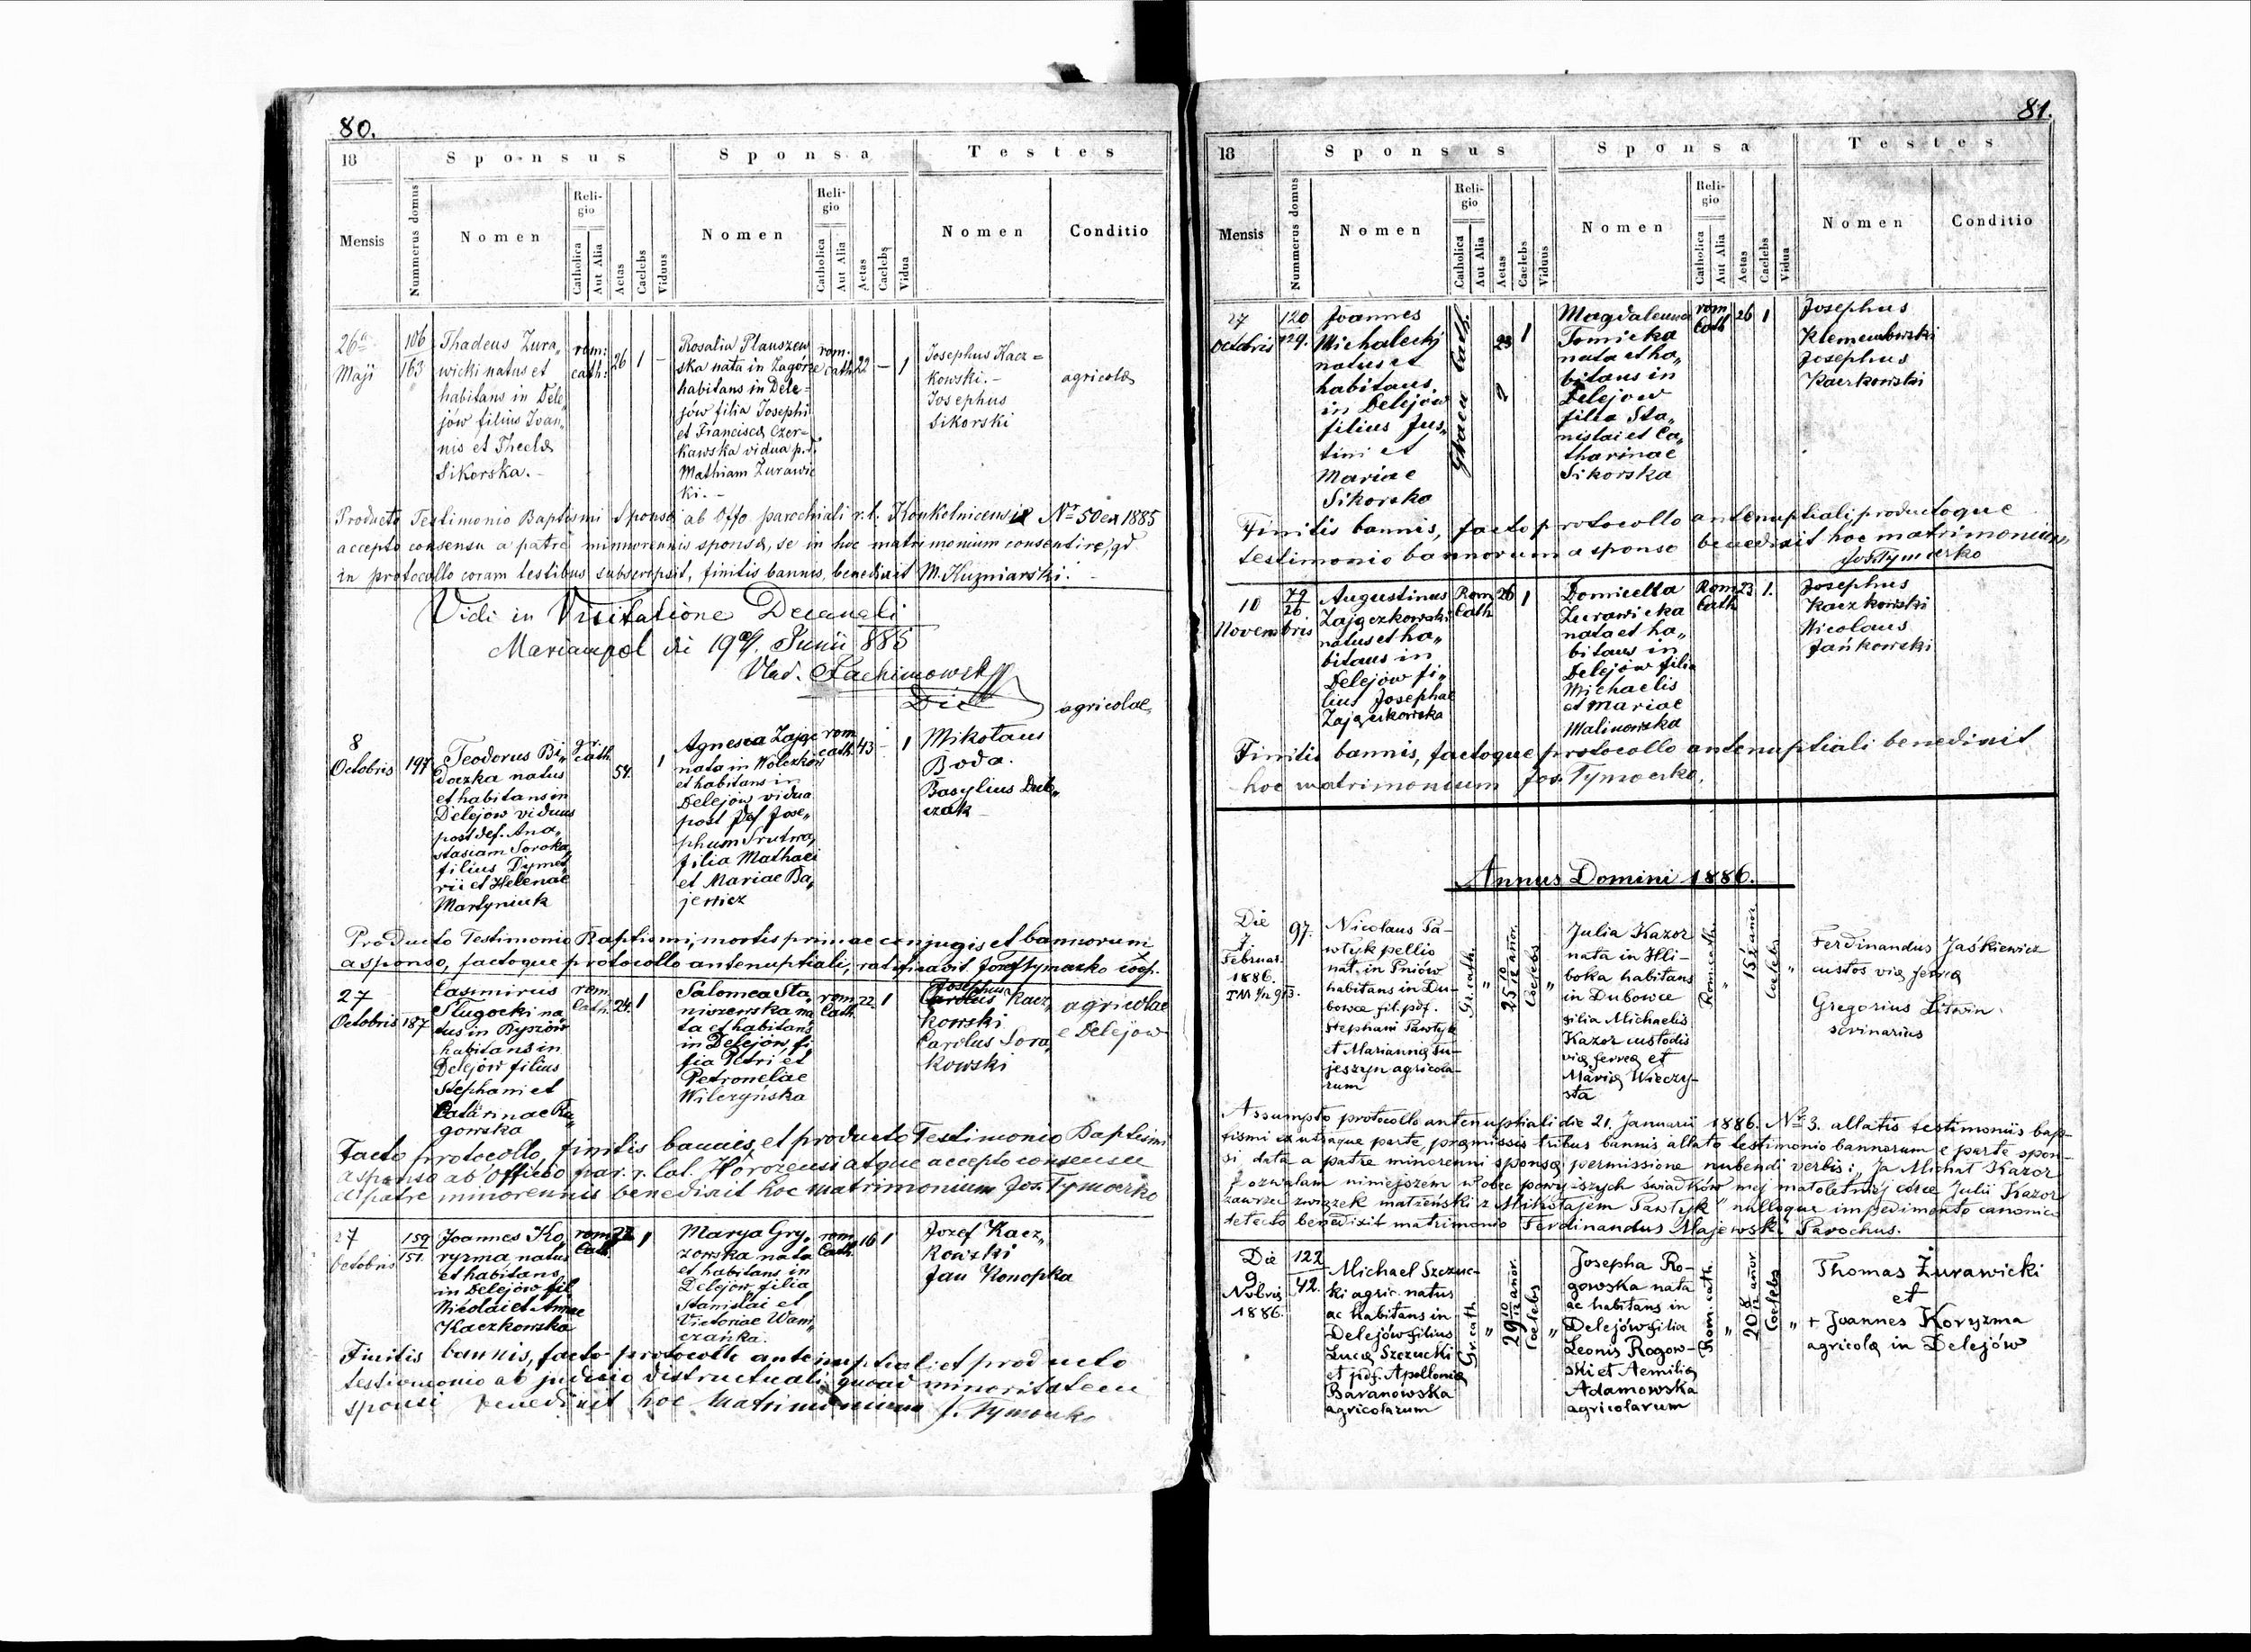 80.
18
Sponsus
Sponsa
Testes
Mensis
Nummerus domus
Nomen
Reli-
gio
Catholica
Aut Alia
Aetas
Caelebs
Viduus
Nomen
Reli-
gio
Catholica
Aut Alia
Aetas
Caelebs
Vidua
Nomen
Conditio
26a
Maji
106
163
Thadeus Żura„
wicki natus et
habitans in Dele„
jów filius Joan„
nis et Theclæ
Sikorska. -
rom:
cath:
26
1
-
Rosalia Plauszew
ska nata in Zagórze
habitans in Dele=
jów filia Josephi
et Franciscæ Czer=
kawska vidua p.d.
Mathiam Żurawic
ki. -
rom.
cath.
22
-
1
Josephus Kacz=
kowski. -
Josephus
Sikorski
agricolæ
Producto Testimonio Baptismi Sponsæ ab Offo parochiali r.l. Konkolnicensi Nr 50 ex 1885
accepto consensu a patre minnorennis sponsæ, se in hoc matrimonium consentire, qd
in protocollo coram testibus subscripsit, finitis bannis, benedixit M. Kuzniarski. -
Vidi in Visitatione Decanali
Mariampol di 19 Junii 885
Vlad.
agricolae
8
Octobris
197
Teodorus Bi„
daczka natus
et habitans in
Delejow viduus
post def. Ana„
stasiam Soroka,
filius Dymet„
rii et Helenae
Martyniuk
gr.
cath
54.
1
Agnesca Zając
nata in Wolczkow
et habitans in
Delejow vidua
post def Jose„
phum Srutwa,
filia Mathaei
et Mariae Ba„
jewicz
rom
cath
43
-
1
Mikołaus
Boda.
Basylius Dub„
czak
Producto Testimonio Baptismi, mortis primae conjugis et bannorum
a sponso, factoque protocollo antenuptiali, ratificavit Josef Tymoczko coop.
27
Octobris
187
Casimirus
Długocki na„
tus in Byszów
habitans in
Delejow filius
Stephani et
Catarinae Ra„
gowska
rom.
Cath.
24.
1
Salomea Sta„
niszewska na
ta et habitans
in Delejow fi
lia Petri et
Petroneliae
Wilczyńska
rom
Cath
22.
1
Josephus Kacz„
kowski
Carolus Sora„
kowski
agricolae
e Delejow
Facto protocollo, finitis bannis, et producto Testimonio Baptismi
a sponso ab Officio par. r. lat. Horozensi atque accepto consensu
a patre minorennis benedixit hoc matrimonium Jos. Tymoczko
27
Octobris
159
151.
Joannes Ko„
ryzma natus
et habitans
in Delejow fil
Nicolai et Annae
Kaczkowska
rom
Cath.
22
1
Marya Gry„
zowska nata
et habitans in
Delejow filia
Stanislai et
Victoriae Wam„
czańka.
rom
Cath.
16
1
Jozef Kacz„
kowski
Jan Konopka
Finitis bannis, facto protocollo antenuptiali et producto
testimonio ab judicio districtuali quoad minoritatem
sponsi benedixit hoc Matrimonium J. Tymoczko
81.
18
Sponsus
Sponsa
Testes
Mensis
Nummerus domus
Nomen
Reli-
gio
Catholica
Aut Alia
Aetas
Caelebs
Viduus
Nomen
Reli-
gio
Catholica
Aut Alia
Aetas
Caelebs
Vidua
Nomen
Conditio
27
Octobris
120
129.
Joannes
Michalecki
natus et
habitans
in Delejow
filius Jus„
tini et
Mariae
Sikorska
Graeci Cath.
23
1
Magdalenna
Tomicka
nata et ha„
bitans in
Delejow
filia Sta„
nislai et Ca„
tharinae
Sikorska
rom
Cath
26
1
Josephus
Klemembowski
Josephus
Kaczkowski
Finitis bannis, facto protocollo antenuptiali, productoque
testimonio bannorum a sponso benedixit hoc matrimonium
Jos. Tymoczko
10
Novembris
79
26
Augustinus
Zajączkowski
natus et ha„
bitans in
Delejow fi„
lius Josephae
Zajączkowska
Rom
Cath
26
1
Domicella
Zurawicka
nata et ha„
bitans in
Delejow filia
Michaelis
et Mariae
Malinowska
Rom
Cath
23
1.
Josephus
Kaczkowski
Nicolaus
Jańkowski
Finitis bannis, factoque protocollo antenuptiali benedixit
hoc matrimonium Jos. Tymoczko.
Annus Domini 1886.
Die
7
Februar.
1886.
97.
Nicolaus Pa-
włyk pellio
nat. in Pniów
habitans in Du-
bowce fil. pdf.
Stephani Pawłyk
et Mariannæ Tu-
jeszyn agricola-
rum
Gr. cath.
„
25 10/12 añor.
Coelebs
„
Julia Kazor
nata in Hli-
boka habitans
in Dubowce
filia Michaelis
Kazor custodis
viæ ferreæ et
Mariæ Wieczy-
sta
Rom. cath.
„
15 añor
Coelebs
„
Ferdinandus Jaśkiewicz
custos viæ ferreæ
Gregorius Litwin
scrinarius
Assumpto protocollo antenuptiali die 21. Januarii 1886. Nr 3. allatis testimoniis bap-
tismi ex utraque parte, præmissis tribus bannis allato testimonio bannorum e parte spon-
si data a patre minorenni sponsæ permissione nubendi verbis: „Ja Michał Kazor
pozwalam niniejszem wobec powyższych świadków mej małoletniéj córce Julii Kazor
zawrzeć związek małżeński z Mikołajem Pawłyk" nulloque impedimento canonico
detecto benedixit matrimonio Ferdinandus Majewski Parochus.
Die
9
Nobris
1886.
122
42.
Michael Szczuc-
ki agric. natus
ac habitans in
Delejów filius
Lucæ Szczucki
et pdf. Apolloniæ
Baranowska
agricolarum
Gr. cath.
„
29 10/12 añor.
Coelebs
„
Josepha Ro-
gowska nata
ac habitans in
Delejów filia
Leonis Rogow-
ski et Aemiliæ
Adamowska
agricolarum
Rom. cath.
„
20 8/12 añor
Coelebs
„
Thomas Żurawicki
et
+ Joannes Koryzma
agricolæ in Delejów